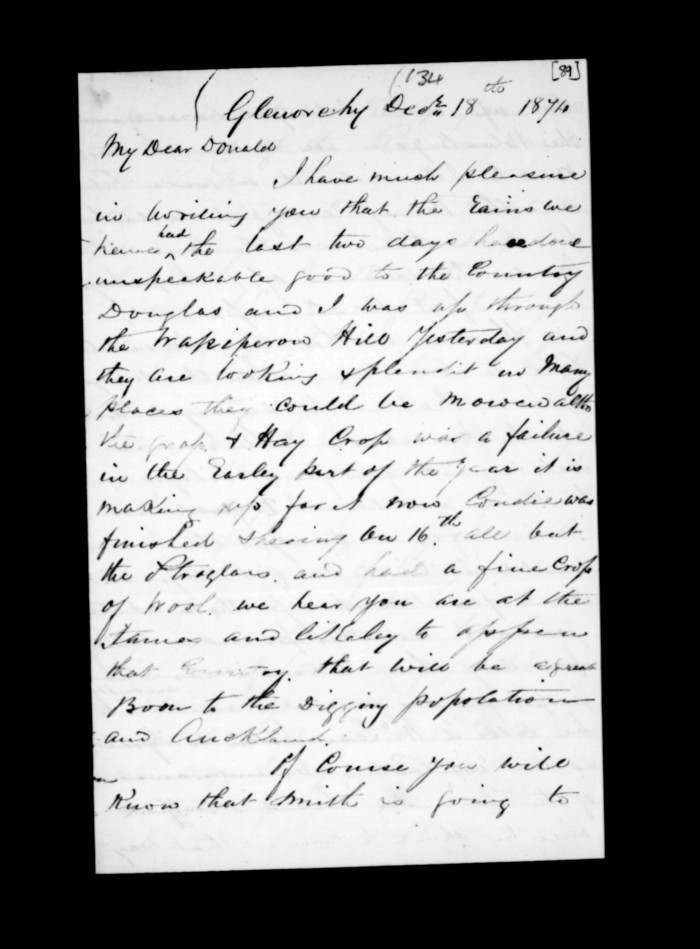 (134
[89]
Glenorchy Decr 18th 1874
My Dear Donald
I have much pleasure
in Writing you that the Rains we
have had the last two days have done
unspeakable good to the Country
Douglas and I was up through
the Hill Yesterday and
they are looking splendit in Many
places they could be Mowed altho
the grap & Hay Crop was a failure
in the Earley part of the Year it is
making up for it now Condie was
finished Shearing On 16th all but
the Straglars. and had a fine Crop
of Wool. we hear you are at the
Tames and likeley to oppen
that Country that will be a great
Boon to the Digging Popolation
and Auckland.
Of Course you will
Know that Smith is going to